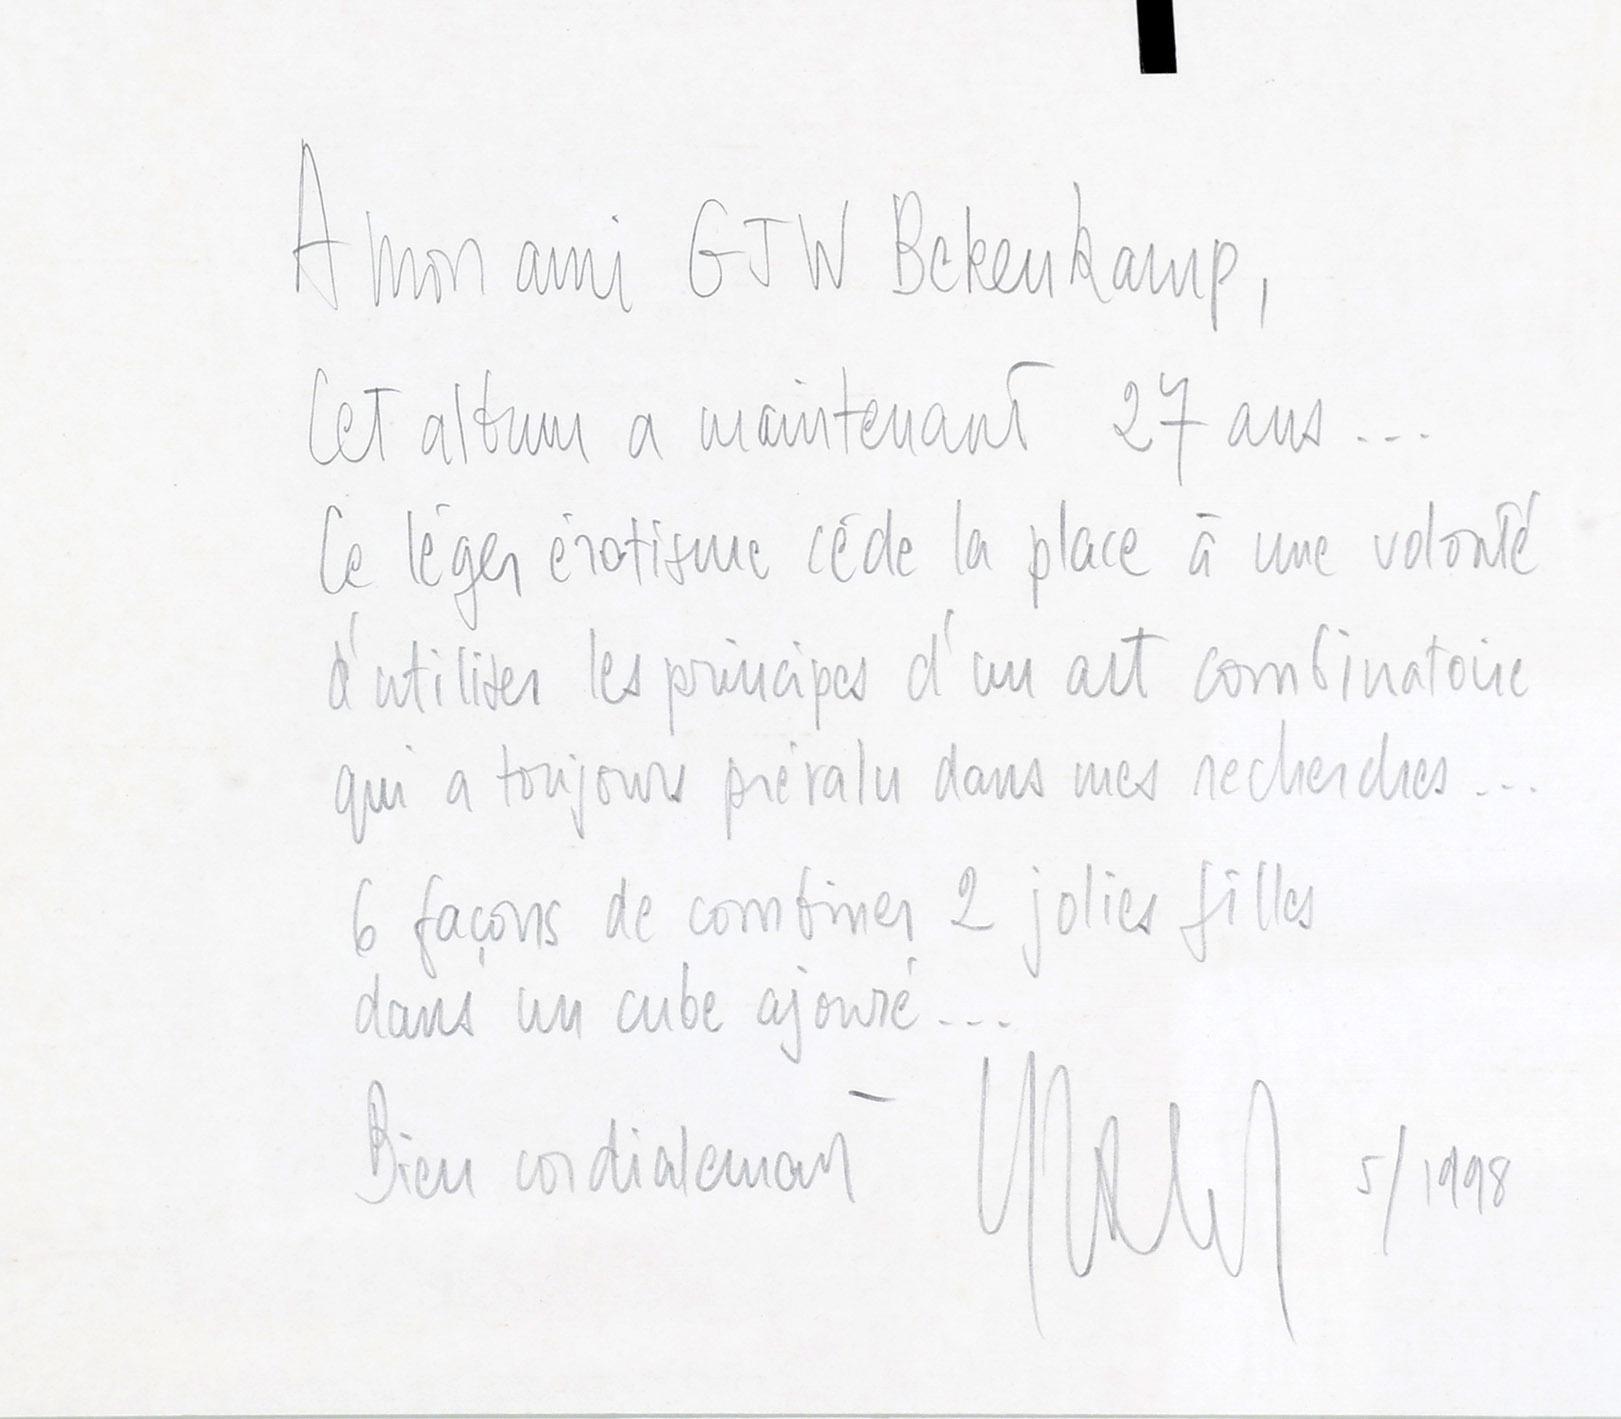 A mon ami GJW Bekenkamp,
Cet album a maintenant 27 ans ...
Ce léger érotisme cède la place à une volonté
d'utiliser les principes d'un art combinatoire
qui a toujours prévalu dans mes recherches ...
6 façons de combiner 2 jolies filles
dans un cube ajouré ...
Bien cordialement
5/1998